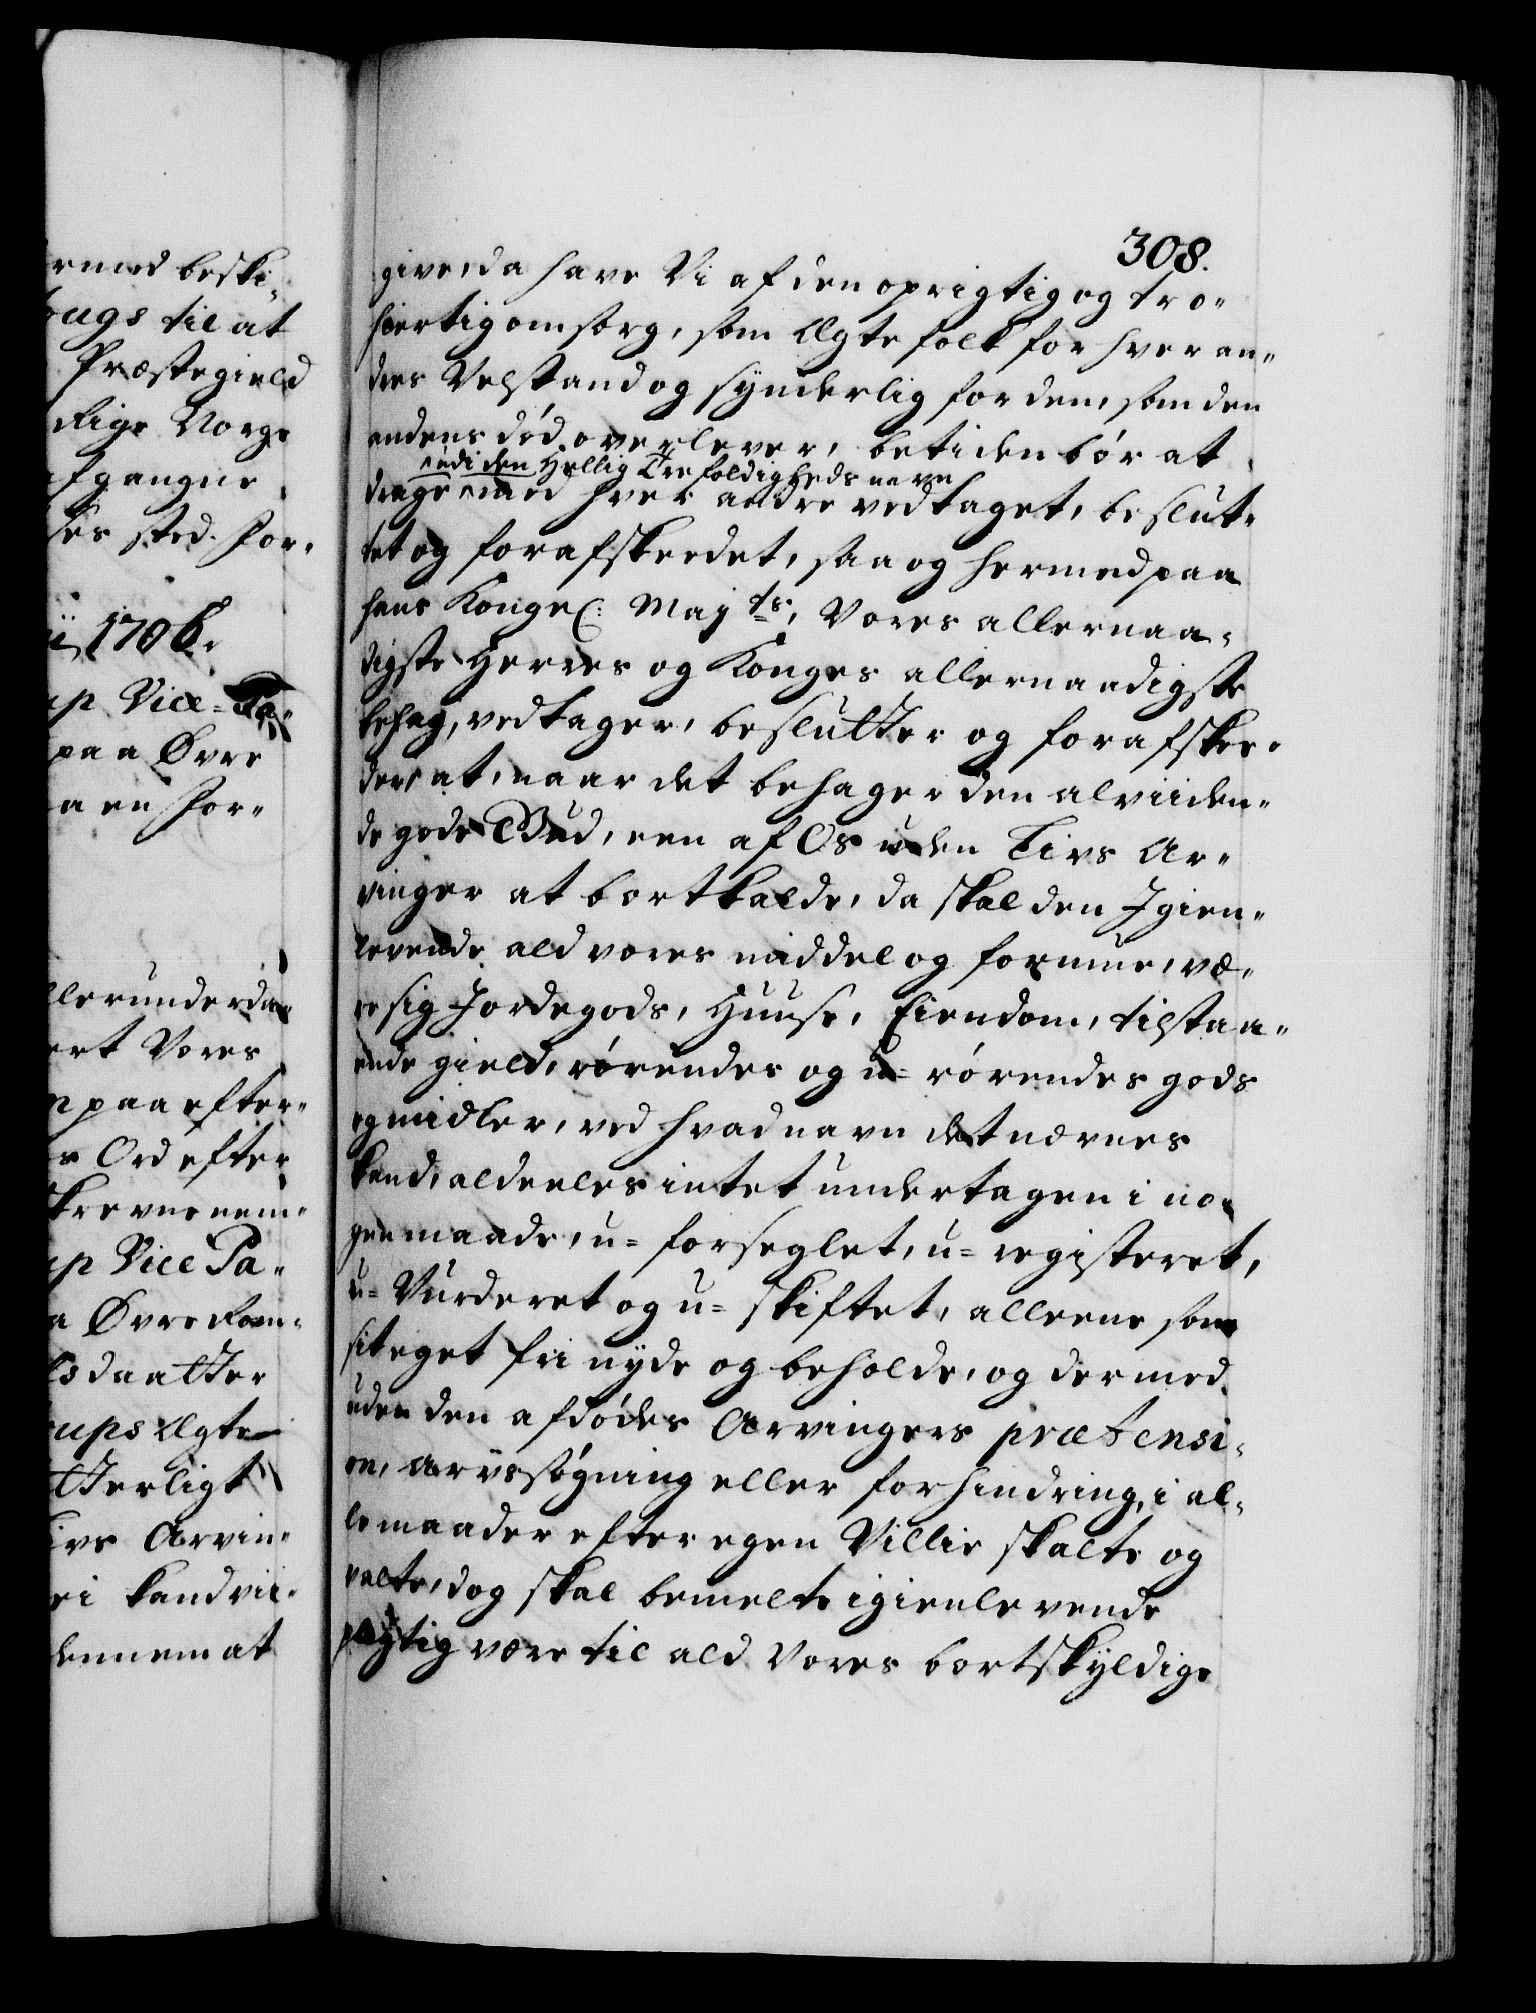 ermed beski-
ougs til at
Præstegield
Rige Norge
afgangne
ses sted. For-
ii 1706.
up Vice-Pa-
paa Øvre
a en For-
llerunderda-
ert Vores
n paa efter-
s Ord efter
skrevne nem-
up Vice Pa-
a Øvre Rom-
lsdaatter
rups Ægte-
tterligt
ivs Arvin-
ei kand vii-
dennem at
308.
give, da have Vi af den oprigtig og tro-
hiertig omsorg, som Ægtefolk for hver an-
dres Velstand og synderlig for dem, som den
andens død overlever, betiden bør at
udi den Hellig Trefoldigheds navn
drage med hver andre vedtaget, beslut-
tet og forafskeedet, saa og hermed paa
hans Kongel: Maj ts, Vores allernaa-
digste Herres og Konges allernaadigste
behag, vedtager, beslutter og forafskee-
der, at, naar det behager den alviiden-
de gode Gud, een af Os uden Livs Ar-
vinger at bortkalde, da skal den Igien-
levende ald vores middel og formue, væ-
re sig Jordegods, Huuse, Eiendom, tilstaa-
ende gield, rørendes og u-rørendes gods
og midler, ved hvad navn det nævnes
kand, aldeeles intet undertagen i no-
gen maade, u-forseglet, u-registeret,
u-Vurderet og u-skiftet, alleene som
sit eget frii nyde og beholde, og dermed
uden den afdødes Arvingers prætensi-
on, arvssøgning eller forhindring, i al-
le maader efter egen Villie skalte og
valte, dog skal bemelte igienlevende
pligtig være til ald Vores bortskyldige